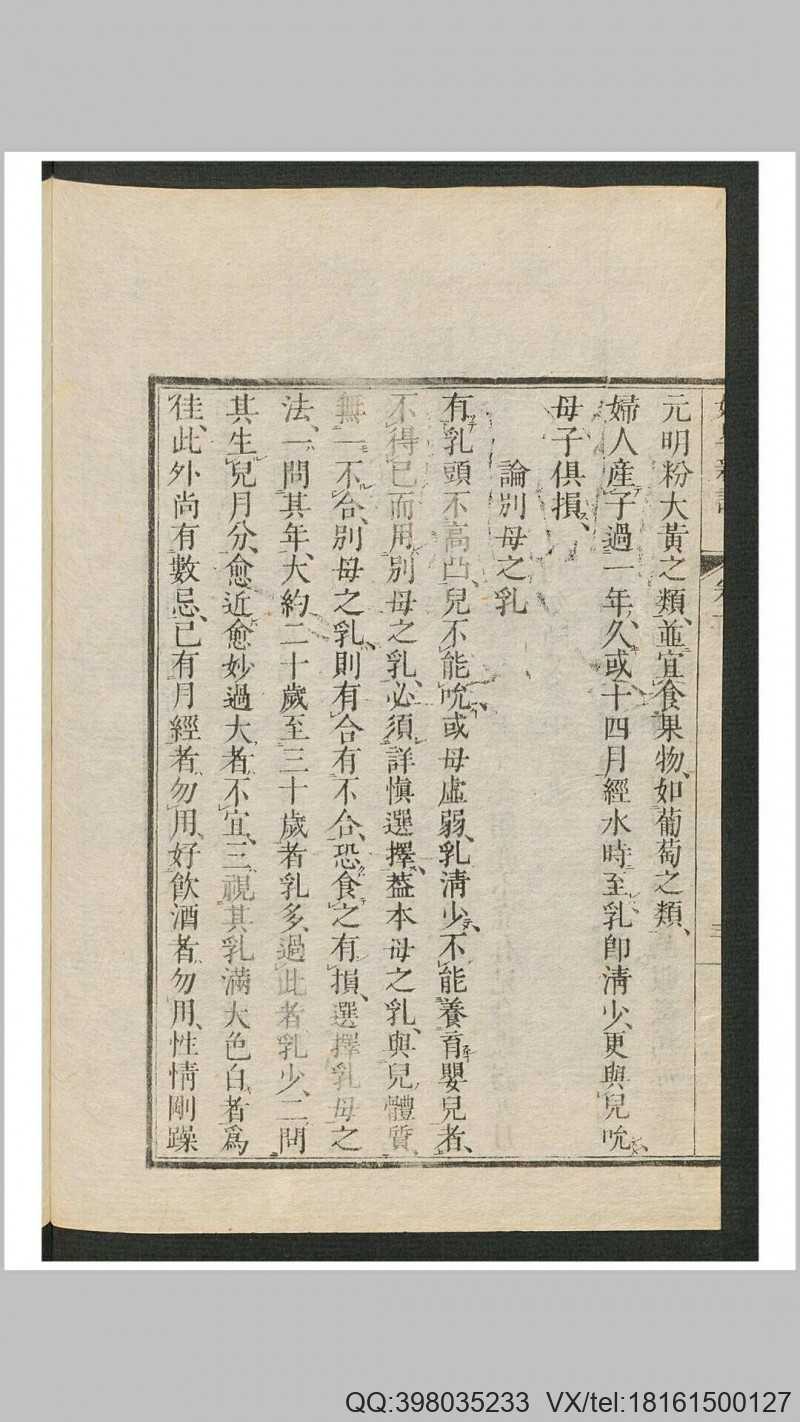 元明粉大黃之類、並宜食果物、如葡萄之類、
婦人產子過一年久、或十四月經水時至、乳即淸少、更與兒吮、
母子俱損、
論別母之乳
有乳頭不高凸、兒不能吮、或母虛弱、乳淸少、不能養育嬰兒者、
不得已而用別母之乳、必須詳愼選擇、葢本母之乳、與兒體質、
無一不合、別母之乳、則有合有不合、恐食之有損、選擇乳母之
法、一問其年、大約二十歲至三十歲者乳多、過此者乳少、二問
其生兒月分、愈近愈妙、過大者不宜、三視其乳滿大色白者爲
佳、此外尚有數忌、已有月經者勿用、好飮酒者勿用、性情剛躁
QQ:398035233 VX/tel:18161500127